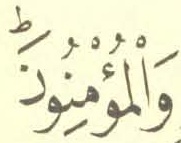 وَالْمُؤْمِنُونَ ۖؕ